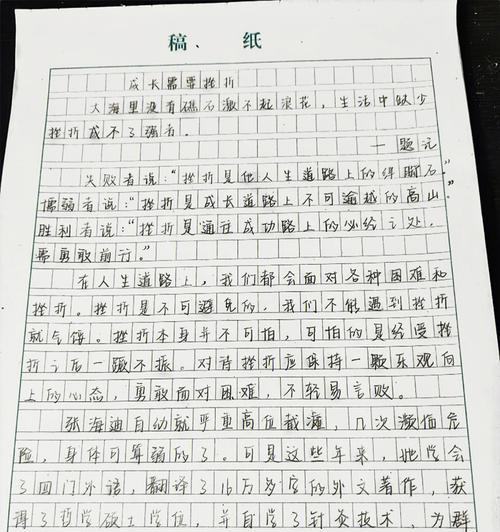 稿、纸
成长需要挫折
大海里没有礁石激不起浪花，生活中缺少
挫折成不了强者。
—题记
失败者说：“挫折是他人生道路上的绊脚石。”
懦弱者说：“挫折是成长道路上不可逾越的高山。”
胜利者说：“挫折是通往成功路上的必经之处，
需勇敢前行。”
在人生道路上，我们都会面对各种困难和
挫折。挫折是不可避免的，我们不能遇到挫折
就气馁。挫折本身并不可怕，可怕的是经受挫
折之后一蹶不振。对待挫折应保持一颗乐观向
上的心态，勇敢面对困难，不轻易言败。
张海迪自幼就严重高位截瘫，几次濒临危
险，身体可算弱的了。可是这些年来，她学会
了四门外语，翻译了16万多字的外文著作，获
得了哲学硕士学位，并自学了针灸技术，为群